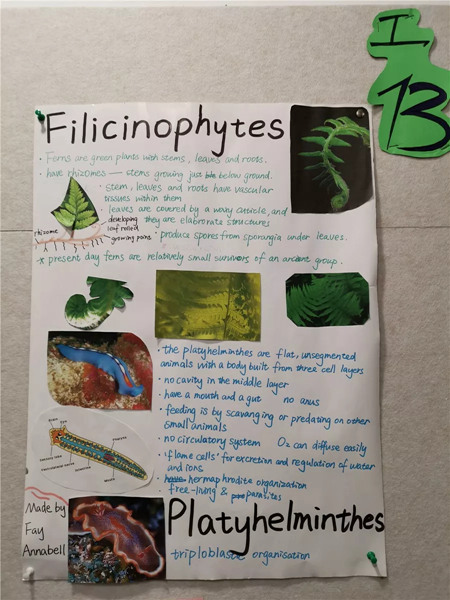 I
13
Filicinophytes
· Ferns are green plants with stems, leaves and roots.
· have rhizomes — stems growing just below ground.
· stem, leaves and roots have vascular
tissues within them
· leaves are covered by a waxy cuticle, and
they are elaborate structures
developing
leaf rolled
rhizome
growing points
· produce spores from sporangia under leaves.
* present day ferns are relatively small survivors of an ancient group.
· the platyhelminthes are flat, unsegmented
animals with a body built from three cell layers
· no cavity in the middle layer
· have a mouth and a gut no anus
· feeding is by scavanging or predating on other
small animals
· no circulatory system O₂ can diffuse easily
· 'flame cells' for excretion and regulation of water
and ions.
· hermaphrodite organization
· free-living & parasites
Made by
Fay
Annabell
Platyhelminthes
triploblastic organisation